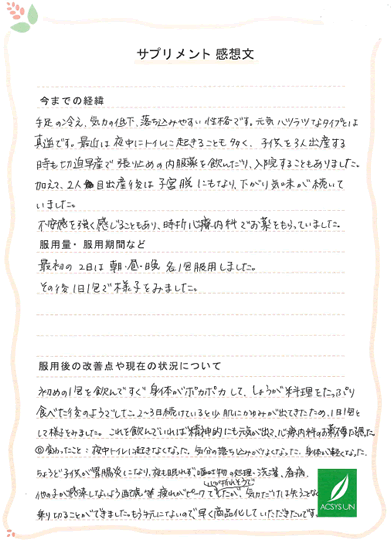 サプリメント 感想文
今までの経緯
手足の冷え、気力の低下、落ち込みやすい性格です。元気ハツラツなタイプとは
真逆です。最近は夜中にトイレに起きることも多く、子供を3人出産する
時も切迫早産で張り止めの内服薬を飲んだり、入院することもありました。
加えて、2人目出産後は子宮脱にもなり、下がり気味が続いて
いました。
不安感を強く感じることもあり、時折心療内科でお薬をもらっていました。
服用量・服用期間など
最初の2日は朝・昼・晩 各1包服用しました。
その後1日1包で様子をみました。
服用後の改善点や現在の状況について
初めの1包を飲んですぐ身体がポカポカして、しょうが料理をたっぷり
食べた後のようでした。2~3日続けていると少し肌にかゆみが出てきたため、1日1包と
して様子をみました。これを飲んでいれば精神的にも元気が出て、心療内科のお薬
夜中トイレに起きなくなった、気分の落ち込みがなくなった、身体が軽くなった、
ちょうど子供が胃腸炎になり、夜も眠れず、嘔吐物の処理・洗濯、看病、
他の子が 疲れがピーク でしたが、気力だけは
乗り切ることができました。もう手元にないので早く商品化していただきたいです。
ACSYSUN